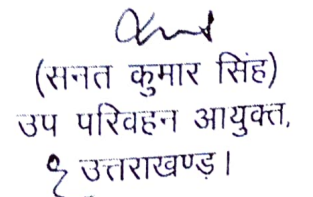 (सनत कुमार सिंह)
उप परिवहन आयुक्त,
उत्तराखण्ड़।